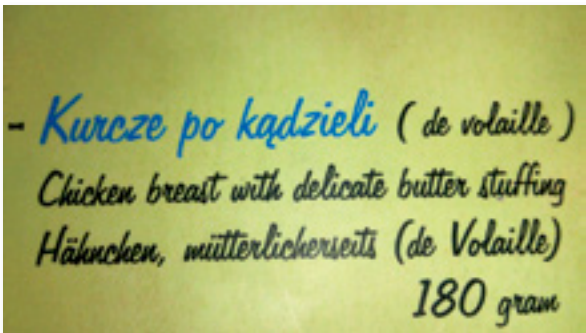 - Kurcze po kądzieli ( de volaille )
Chicken breast with delicate butter stuffing
Hähnchen, mütterlicherseits (de Volaille)
180 gram